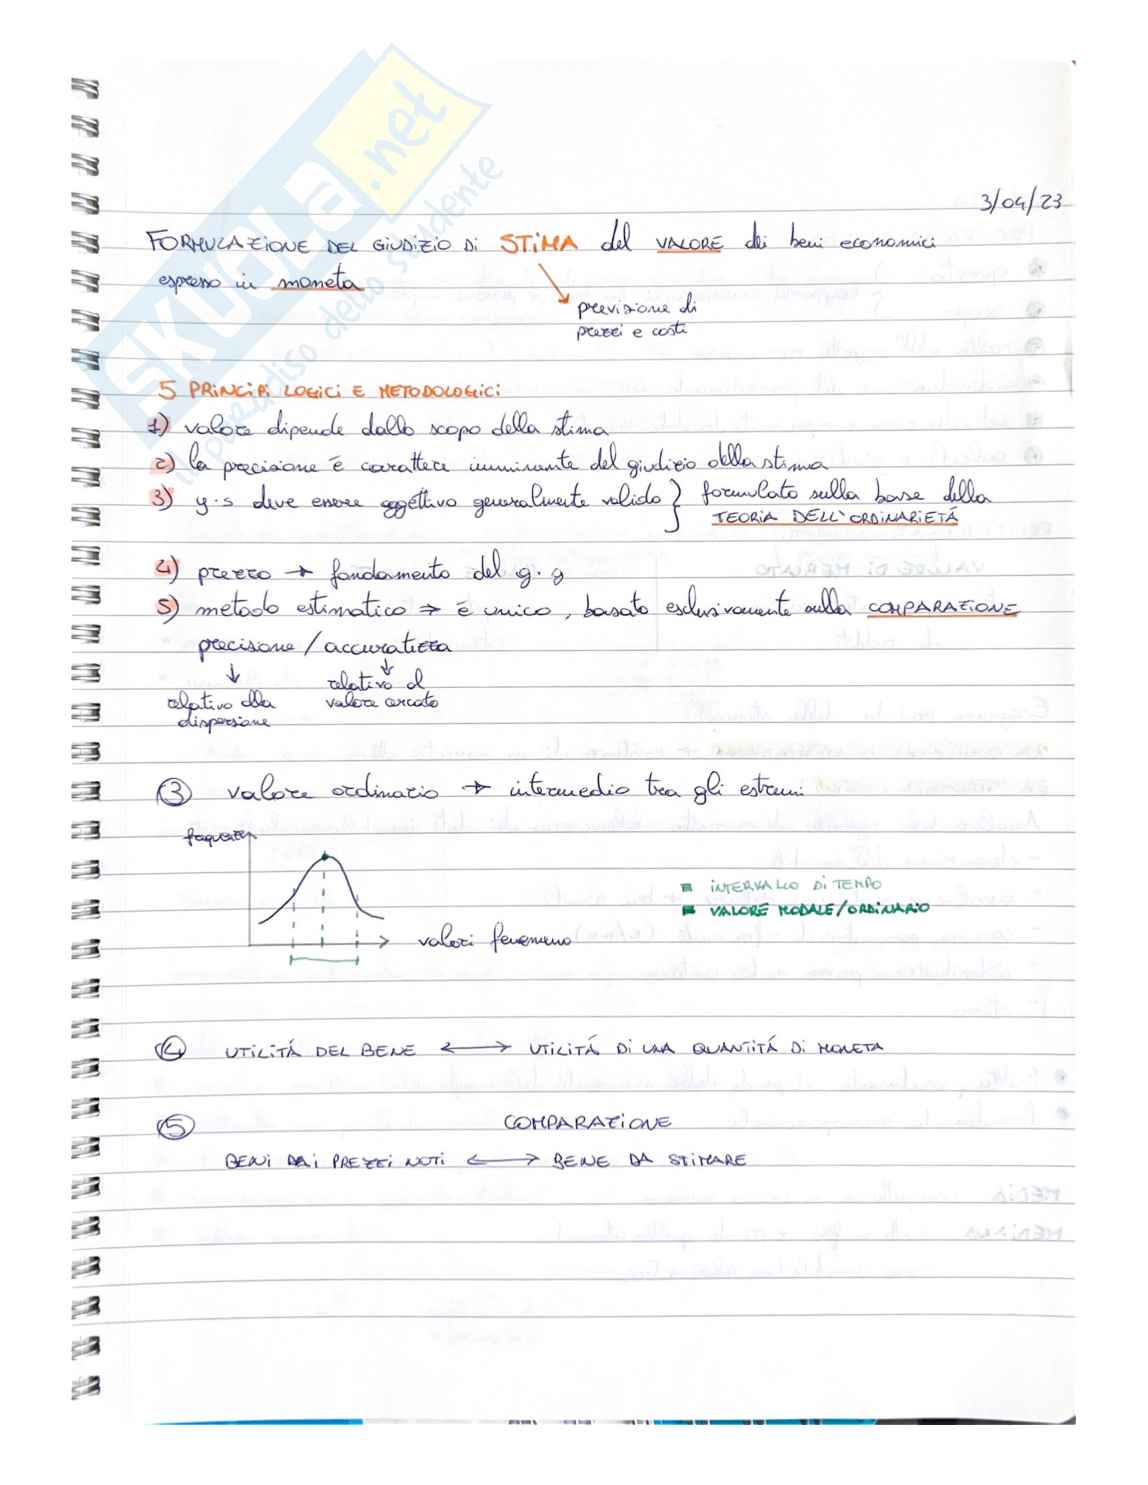 SKUOLA.net
il paradiso dello studente
3/04/23
FORMULAZIONE DEL GIUDIZIO DI STIMA del VALORE dei beni economici
espresso in moneta
previsione di
prezzi e costi
5 PRINCIPI LOGICI E METODOLOGICI
1) valore dipende dallo scopo della stima
2) la precisione è carattere imminente del giudizio della stima
3) g.s deve essere oggettivo generalmente valido } formulato sulla base della
TEORIA DELL'ORDINARIETÁ
4) prezzo → fondamento del g. g
5) metodo estimatico ⇒ è unico, basato esclusivamente sulla COMPARAZIONE
precisione / accuratezza
↓ ↓
relativo alla relativo al
dispersione valore cercato
③ valore ordinario → intermedio tra gli estremi
frequenza
INTERVALLO DI TEMPO
VALORE MODALE/ORDINARIO
valori fenomeno
④ UTILITÁ DEL BENE ⟷ UTILITÁ DI UNA QUANTITÁ DI MONETA
⑤ COMPARAZIONE
BENI DAI PREZZI NOTI ⟷ BENE DA STIMARE